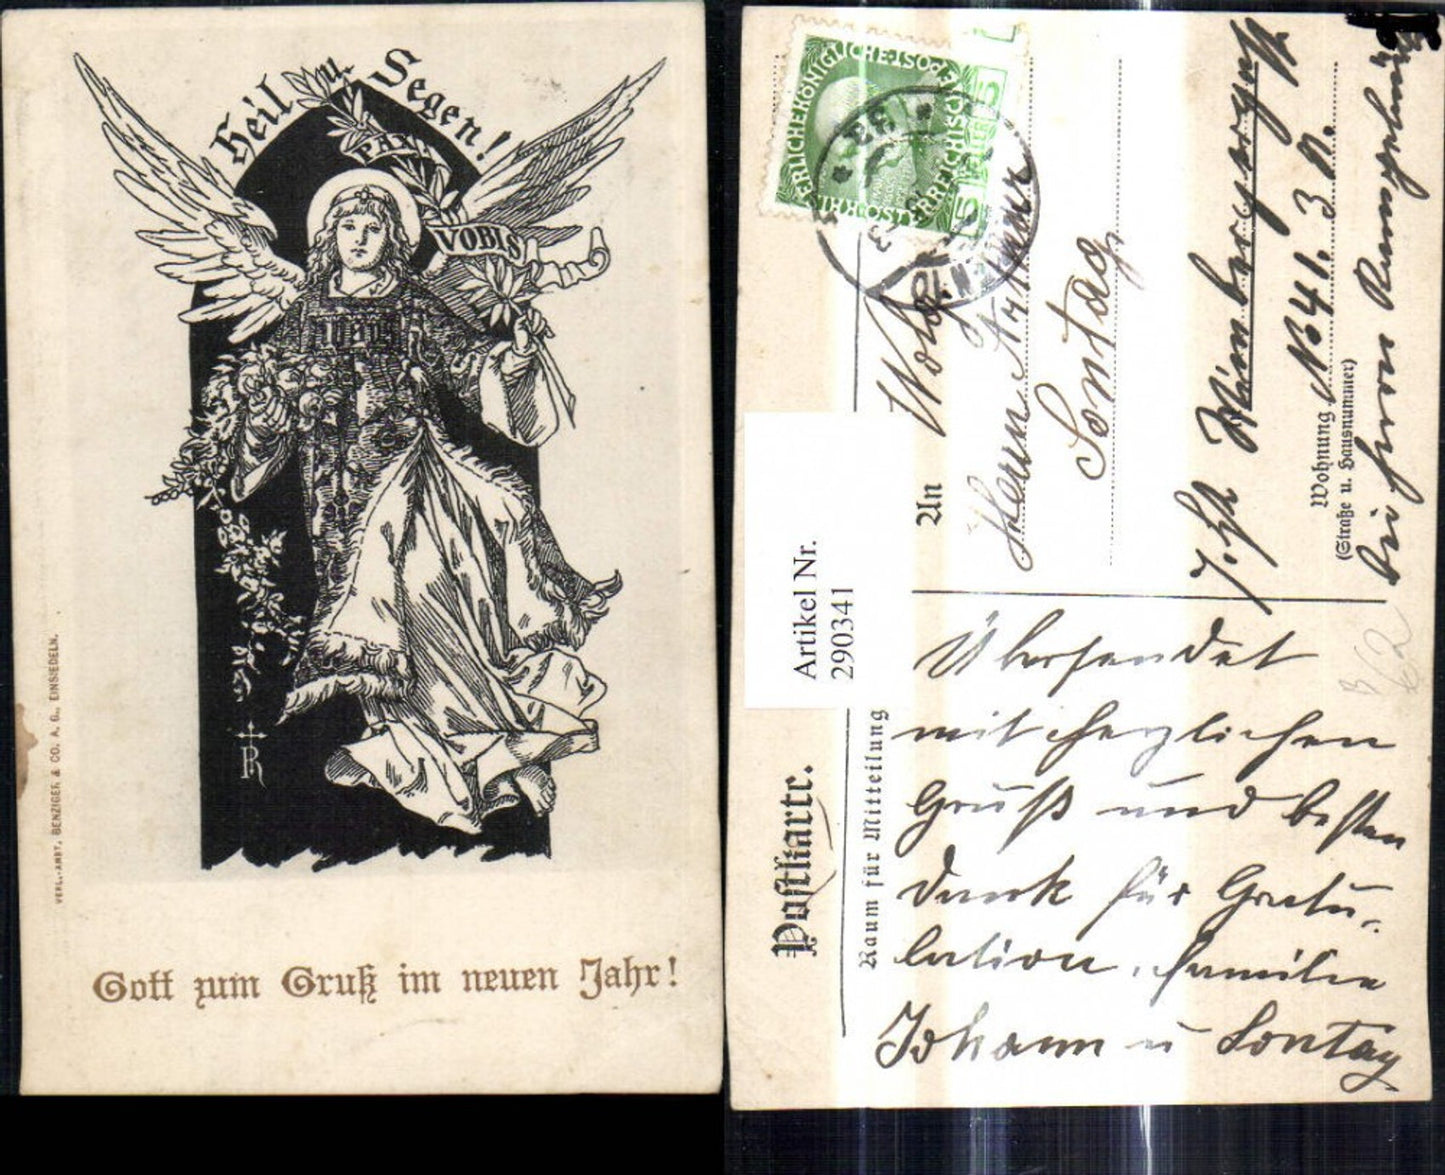 Heil u. Segen!
PAX
VOBIS
VERL.-ANST. BENZIGER & CO. A. G., EINSIEDELN.
Gott zum Gruß im neuen Jahr!
KAISERLICHE KÖNIGLICHE
ÖSTERREICHISCHE POST
5 HELLER 5
Artikel Nr.
290341
Postkarte.
Raum für Mitteilung
An Wolg.
Herrn
Sontag
No 41. 3 N.
Wohnung
(Straße u. Hausnummer)
Übersendet
mit herzlichen
Gruß und besten
Dank für Gratu-
lation, Familie
Johann u Sontag